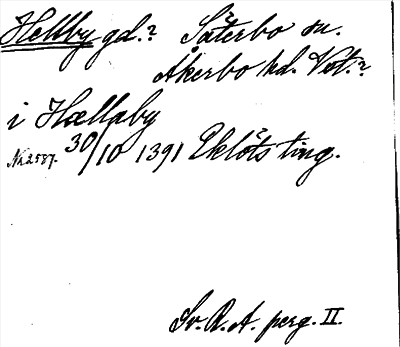 Hellby gd.? Säterbo sn.
Åkerbo hd. Vst.?
i Hællaby
Nr 2587. 30/10 1391 Eklöts ting.
Sv. R. A. perg. II.